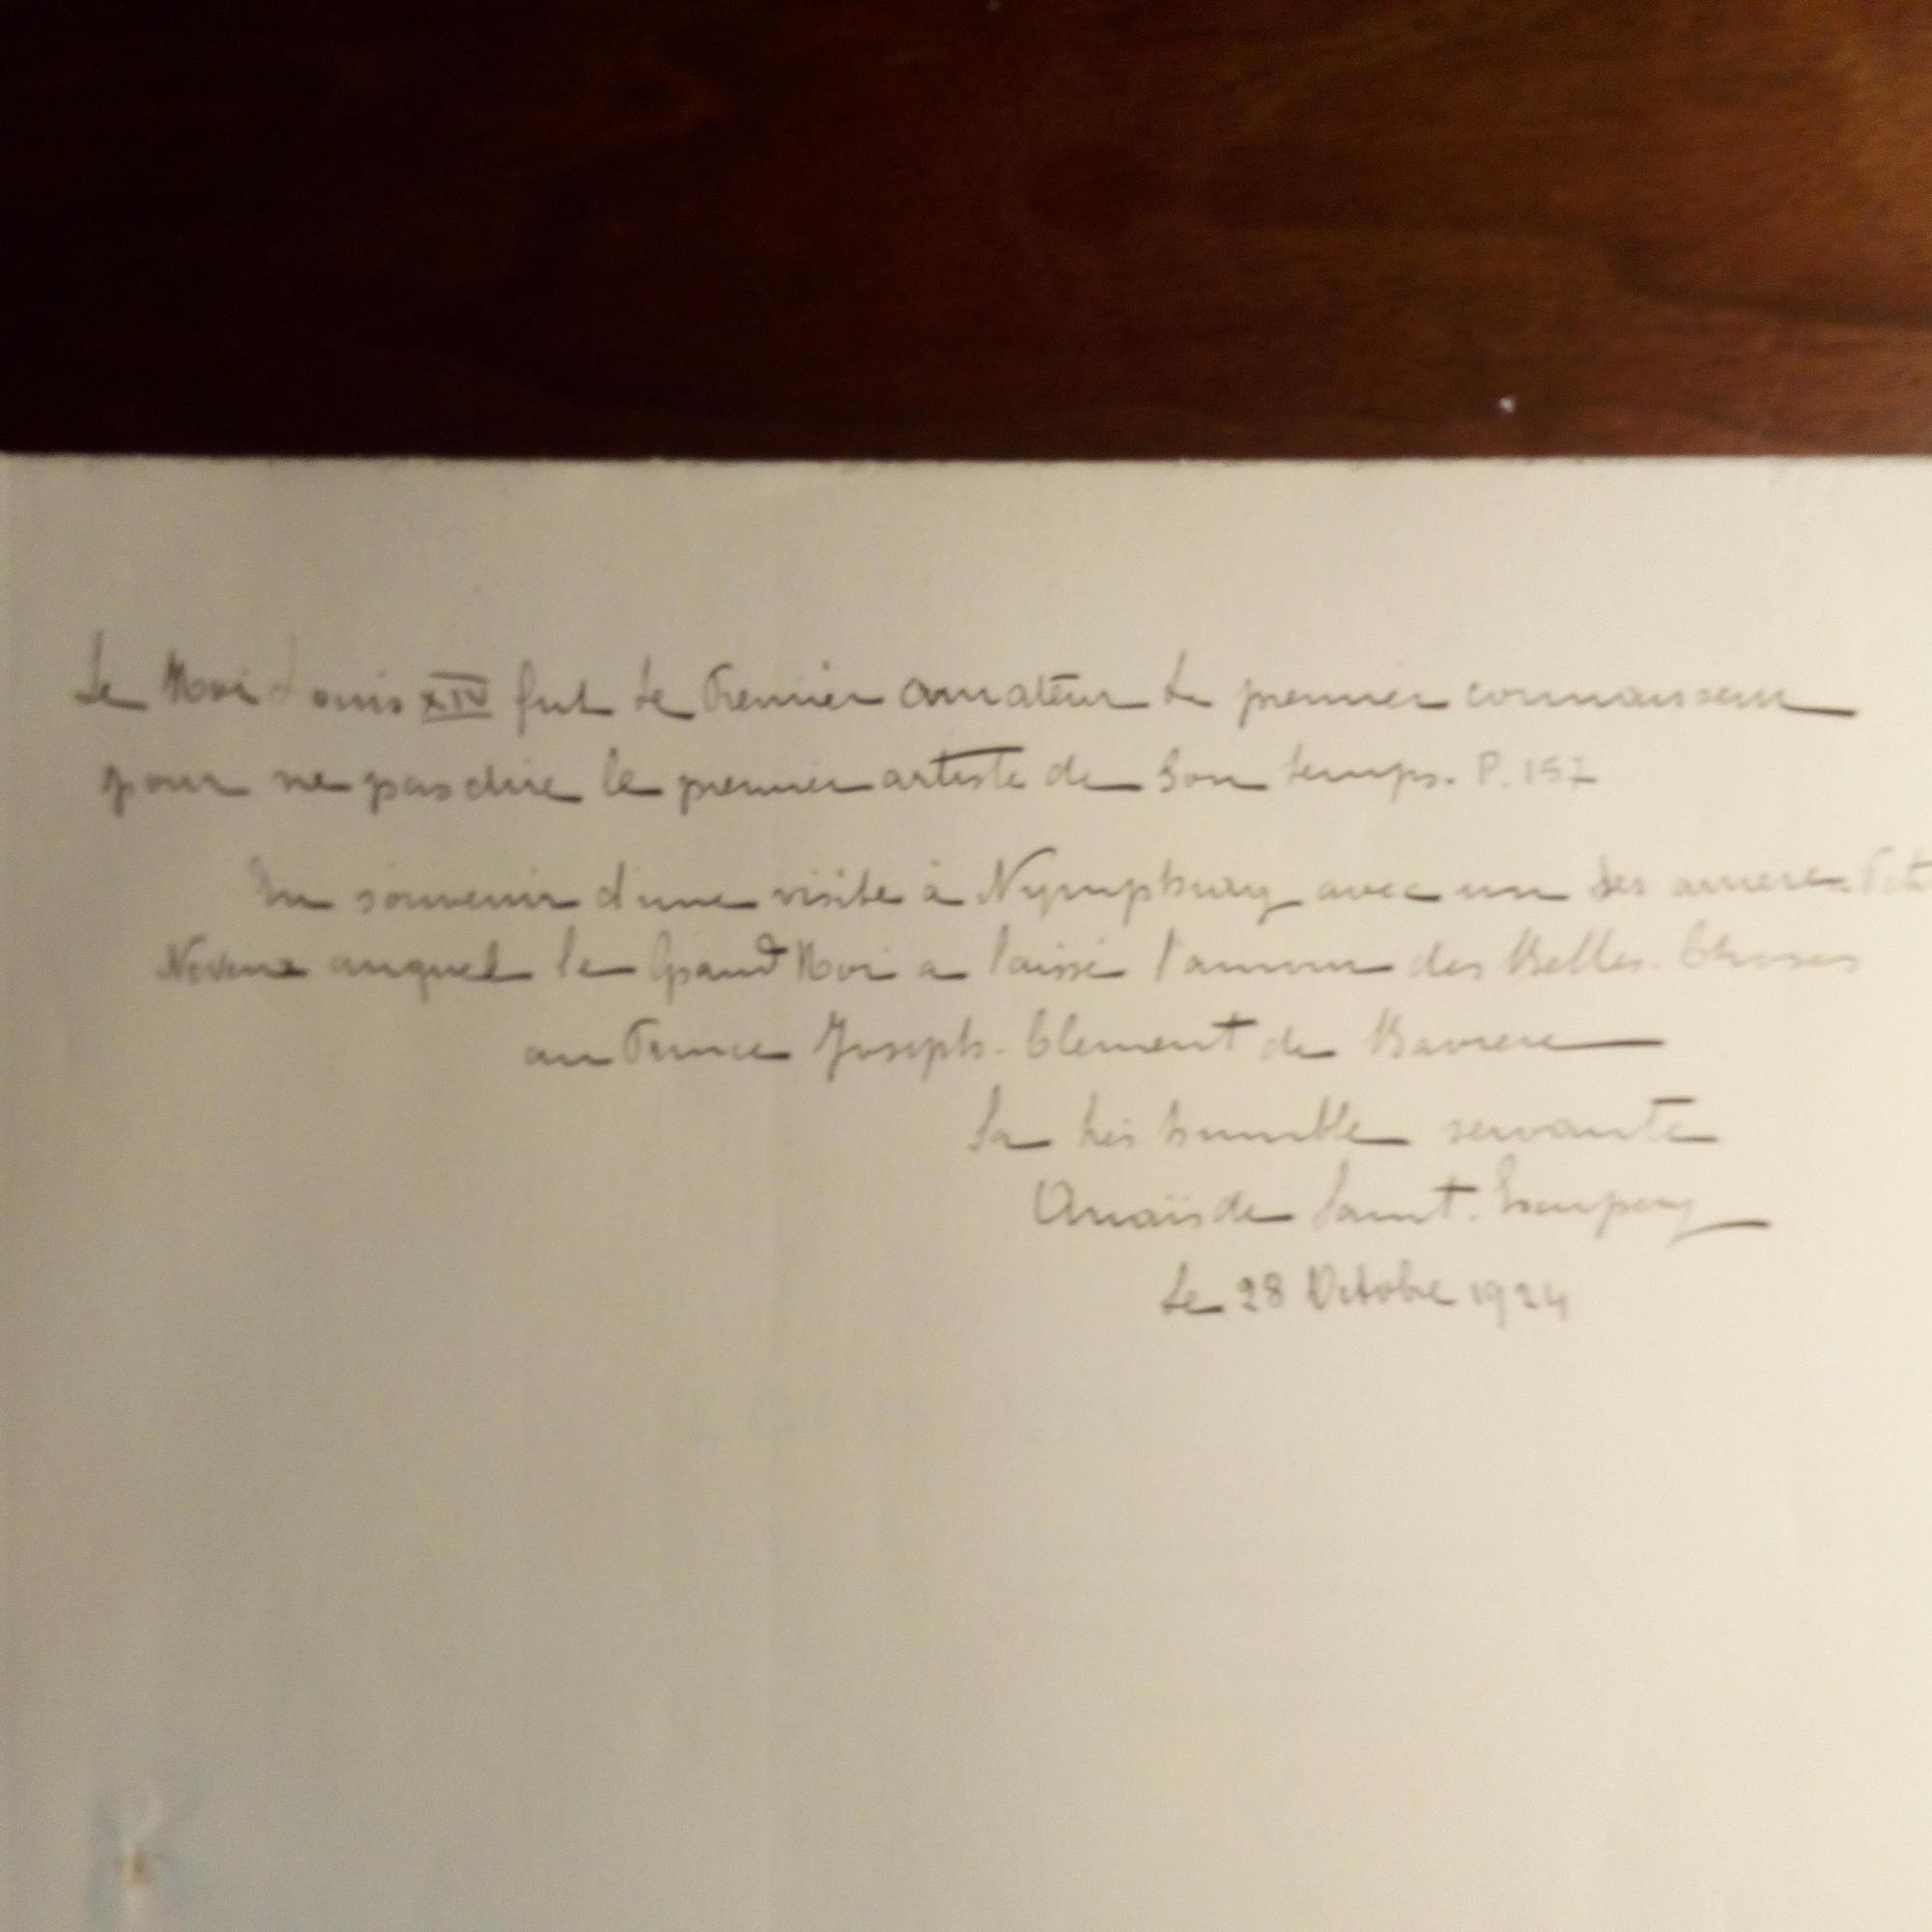 Le Roi Louis XIV fut le Premier amateur le premier connaisseur
pour ne pas dire le premier artiste de son temps. P. 157
En souvenir d'une visite à Nymphburg avec un des arrière-Petits
Neveux auquel le Grand Roi a laissé l'amour des Belles-Choses
au Prince Joseph-Clément de Bavière
Sa très humble servante
Anaïs de Saint-Exupery
Le 28 Octobre 1924